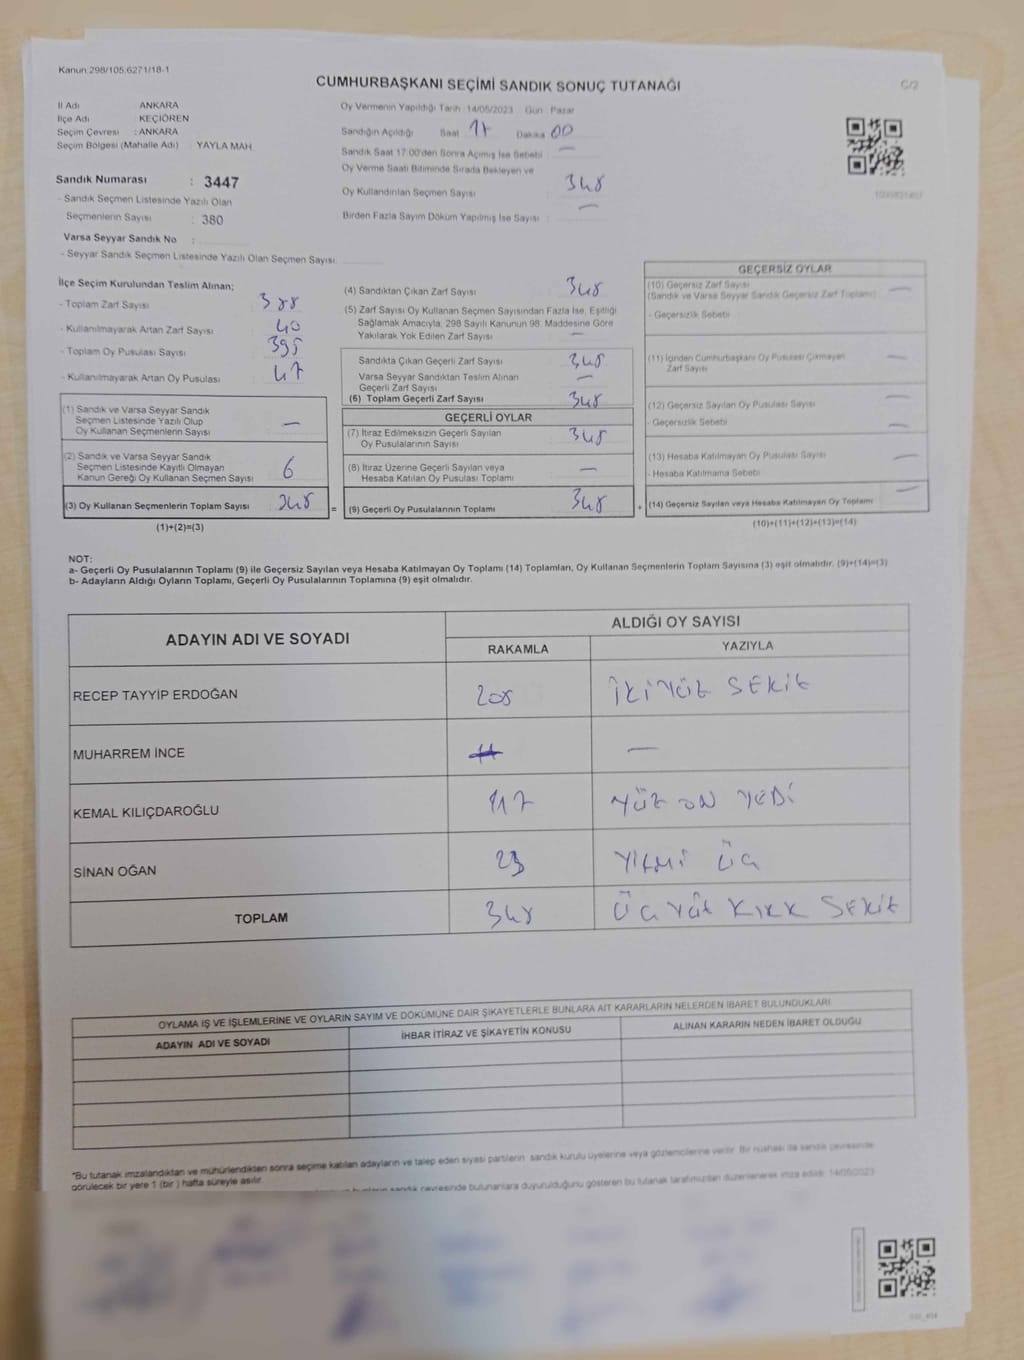 Kanun:298/105,6271/18-1
CUMHURBAŞKANI SEÇİMİ SANDIK SONUÇ TUTANAĞI
C/2
İl Adı ANKARA
İlçe Adı KEÇİÖREN
Seçim Çevresi : ANKARA
Seçim Bölgesi (Mahalle Adı) : YAYLA MAH.
Oy Vermenin Yapıldığı Tarih 14/05/2023 Gün Pazar
Sandığın Açıldığı Saat 17 Dakika 00
Sandık Saat 17:00'den Sonra Açımış İse Sebebi : —
Oy Verme Saati Bitiminde Sırada Bekleyen ve
Oy Kullandırılan Seçmen Sayısı 348
Birden Fazla Sayım Döküm Yapılmış İse Sayısı : —
Sandık Numarası : 3447
- Sandık Seçmen Listesinde Yazılı Olan
Seçmenlerin Sayısı : 380
Varsa Seyyar Sandık No :
- Seyyar Sandık Seçmen Listesinde Yazılı Olan Seçmen Sayısı:
İlçe Seçim Kurulundan Teslim Alınan;
- Toplam Zarf Sayısı 388
- Kullanılmayarak Artan Zarf Sayısı 40
- Toplam Oy Pusulası Sayısı 395
- Kullanılmayarak Artan Oy Pusulası 47
(1) Sandık ve Varsa Seyyar Sandık
Seçmen Listesinde Yazılı Olup
Oy Kullanan Seçmenlerin Sayısı —
(2) Sandık ve Varsa Seyyar Sandık
Seçmen Listesinde Kayıtlı Olmayan
Kanun Gereği Oy Kullanan Seçmen Sayısı 6
(3) Oy Kullanan Seçmenlerin Toplam Sayısı 348 =
(1)+(2)=(3)
(4) Sandıktan Çıkan Zarf Sayısı 348
(5) Zarf Sayısı Oy Kullanan Seçmen Sayısından Fazla İse, Eşitliği
Sağlamak Amacıyla, 298 Sayılı Kanunun 98. Maddesine Göre
Yakılarak Yok Edilen Zarf Sayısı —
Sandıkta Çıkan Geçerli Zarf Sayısı 348
Varsa Seyyar Sandıktan Teslim Alınan
Geçerli Zarf Sayısı —
(6) Toplam Geçerli Zarf Sayısı 348
GEÇERLİ OYLAR
(7) İtiraz Edilmeksizin Geçerli Sayılan
Oy Pusulalarının Sayısı 348
(8) İtiraz Üzerine Geçerli Sayılan veya
Hesaba Katılan Oy Pusulası Toplamı —
(9) Geçerli Oy Pusulalarının Toplamı 348 +
GEÇERSİZ OYLAR
(10) Geçersiz Zarf Sayısı
(Sandık ve Varsa Seyyar Sandık Geçersiz Zarf Toplamı) —
- Geçersizlik Sebebi
(11) İçinden Cumhurbaşkanı Oy Pusulası Çıkmayan
Zarf Sayısı —
(12) Geçersiz Sayılan Oy Pusulası Sayısı —
- Geçersizlik Sebebi —
(13) Hesaba Katılmayan Oy Pusulası Sayısı —
- Hesaba Katılmama Sebebi
(14) Geçersiz Sayılan veya Hesaba Katılmayan Oy Toplamı —
(10)+(11)+(12)+(13)=(14)
NOT:
a- Geçerli Oy Pusulalarının Toplamı (9) ile Geçersiz Sayılan veya Hesaba Katılmayan Oy Toplamı (14) Toplamları, Oy Kullanan Seçmenlerin Toplam Sayısına (3) eşit olmalıdır. (9)+(14)=(3)
b- Adayların Aldığı Oyların Toplamı, Geçerli Oy Pusulalarının Toplamına (9) eşit olmalıdır.
ADAYIN ADI VE SOYADI
ALDIĞI OY SAYISI
RAKAMLA YAZIYLA
RECEP TAYYİP ERDOĞAN 208 İKİYÜZ SEKİZ
MUHARREM İNCE —
KEMAL KILIÇDAROĞLU 117 YÜZ ON YEDİ
SİNAN OĞAN 23 YİRMİ ÜÇ
TOPLAM 348 ÜÇ YÜZ KIRK SEKİZ
OYLAMA İŞ VE İŞLEMLERİNE VE OYLARIN SAYIM VE DÖKÜMÜNE DAİR ŞİKAYETLERLE BUNLARA AİT KARARLARIN NELERDEN İBARET BULUNDUKLARI
ADAYIN ADI VE SOYADI İHBAR İTİRAZ VE ŞİKAYETİN KONUSU ALINAN KARARIN NEDEN İBARET OLDUĞU
*Bu tutanak imzalandıktan ve mühürlendikten sonra seçime katılan adayların ve talep eden siyasi partilerin sandık kurulu üyelerine veya gözlemcilerine verilir. Bir nüshası da sandık çevresinde
görülecek bir yere 1 (bir) hafta süreyle asılır.
sandık çevresinde bulunanlara duyurulduğunu gösteren bu tutanak tarafımızdan düzenlenerek imza edildi. 14/05/2023